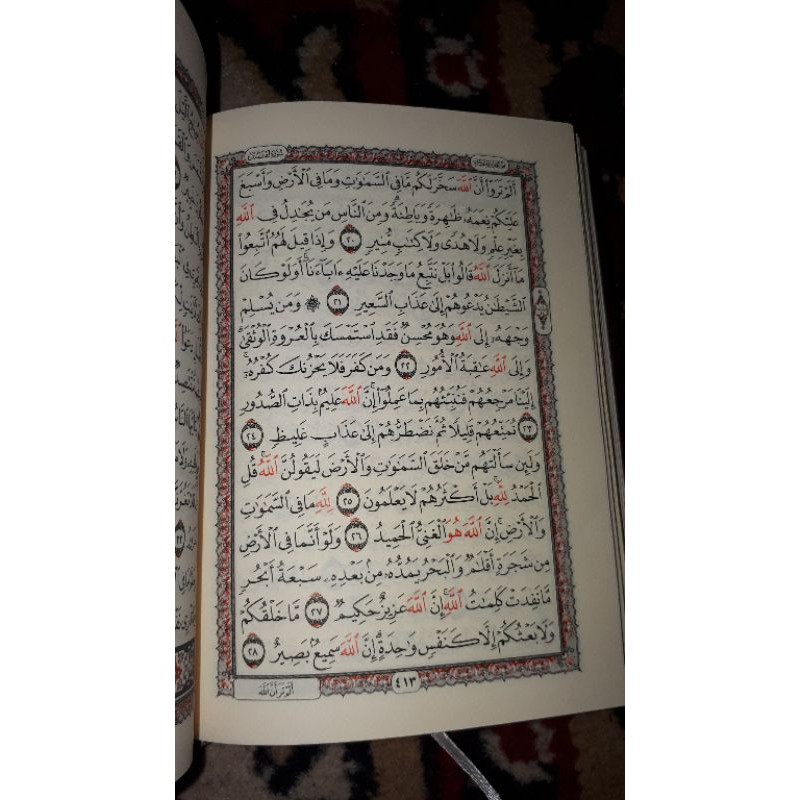 أَلَمْ تَرَوْا۟ أَنَّ ٱللَّهَ سَخَّرَ لَكُم مَّا فِى ٱلسَّمَٰوَٰتِ وَمَا فِى ٱلْأَرْضِ وَأَسْبَغَ
عَلَيْكُمْ نِعَمَهُۥ ظَٰهِرَةً وَبَاطِنَةً ۗ وَمِنَ ٱلنَّاسِ مَن يُجَٰدِلُ فِى ٱللَّهِ
بِغَيْرِ عِلْمٍ وَلَا هُدًى وَلَا كِتَٰبٍ مُّنِيرٍ ٢٠ وَإِذَا قِيلَ لَهُمُ ٱتَّبِعُوا۟
مَآ أَنزَلَ ٱللَّهُ قَالُوا۟ بَلْ نَتَّبِعُ مَا وَجَدْنَا عَلَيْهِ ءَابَآءَنَآ ۚ أَوَلَوْ كَانَ
ٱلشَّيْطَٰنُ يَدْعُوهُمْ إِلَىٰ عَذَابِ ٱلسَّعِيرِ ٢١ ۞ وَمَن يُسْلِمْ
وَجْهَهُۥٓ إِلَى ٱللَّهِ وَهُوَ مُحْسِنٌ فَقَدِ ٱسْتَمْسَكَ بِٱلْعُرْوَةِ ٱلْوُثْقَىٰ ۗ
وَإِلَى ٱللَّهِ عَٰقِبَةُ ٱلْأُمُورِ ٢٢ وَمَن كَفَرَ فَلَا يَحْزُنكَ كُفْرُهُۥٓ ۚ
إِلَيْنَا مَرْجِعُهُمْ فَنُنَبِّئُهُم بِمَا عَمِلُوٓا۟ ۚ إِنَّ ٱللَّهَ عَلِيمٌۢ بِذَاتِ ٱلصُّدُورِ
٢٣ نُمَتِّعُهُمْ قَلِيلًا ثُمَّ نَضْطَرُّهُمْ إِلَىٰ عَذَابٍ غَلِيظٍ ٢٤
وَلَئِن سَأَلْتَهُم مَّنْ خَلَقَ ٱلسَّمَٰوَٰتِ وَٱلْأَرْضَ لَيَقُولُنَّ ٱللَّهُ ۚ قُلِ
ٱلْحَمْدُ لِلَّهِ ۚ بَلْ أَكْثَرُهُمْ لَا يَعْلَمُونَ ٢٥ لِلَّهِ مَا فِى ٱلسَّمَٰوَٰتِ
وَٱلْأَرْضِ ۚ إِنَّ ٱللَّهَ هُوَ ٱلْغَنِىُّ ٱلْحَمِيدُ ٢٦ وَلَوْ أَنَّمَا فِى ٱلْأَرْضِ
مِن شَجَرَةٍ أَقْلَٰمٌ وَٱلْبَحْرُ يَمُدُّهُۥ مِنۢ بَعْدِهِۦ سَبْعَةُ أَبْحُرٍ
مَّا نَفِدَتْ كَلِمَٰتُ ٱللَّهِ ۗ إِنَّ ٱللَّهَ عَزِيزٌ حَكِيمٌ ٢٧ مَّا خَلْقُكُمْ
وَلَا بَعْثُكُمْ إِلَّا كَنَفْسٍ وَٰحِدَةٍ ۗ إِنَّ ٱللَّهَ سَمِيعٌۢ بَصِيرٌ ٢٨
٤١٣
ألم تر أن الله